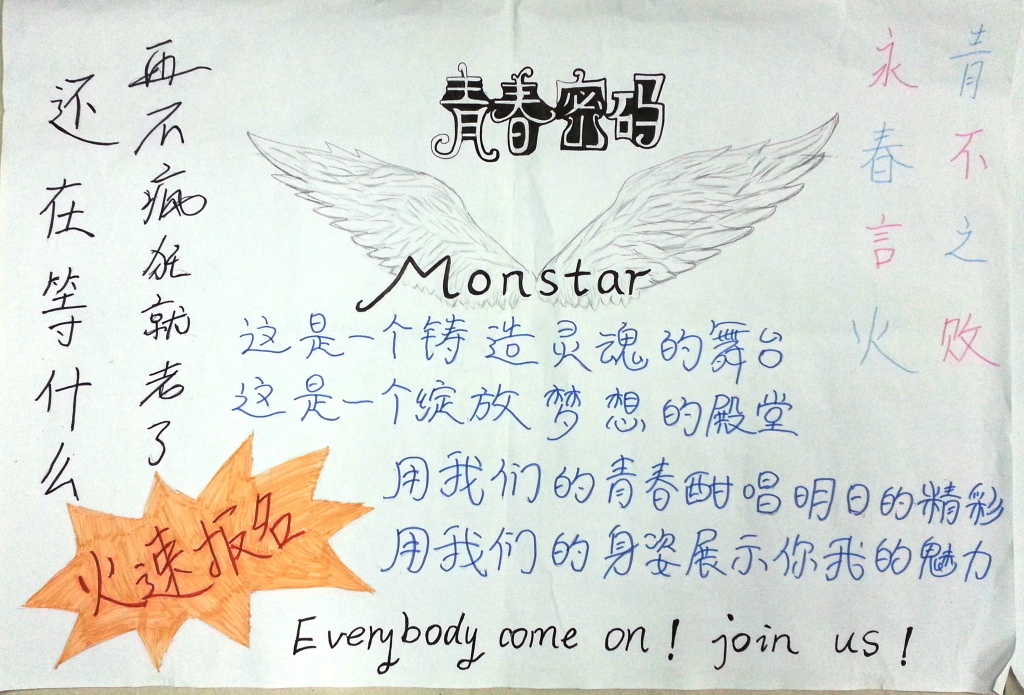 青春密码
Monstar
青春之火
永不言败
再不疯狂就老了
还在等什么
这是一个铸造灵魂的舞台
这是一个绽放梦想的殿堂
用我们的青春酣唱明日的精彩
用我们的身姿展示你我的魅力
火速报名
Everybody come on! join us!